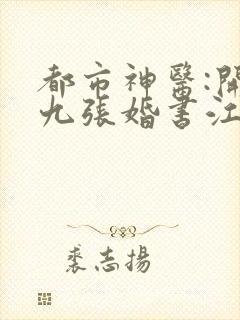 都市神醫:開
九張婚書江
裘志揚